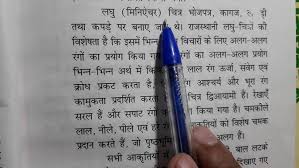 लघु (मिनिएचर) चित्र भोजपत्र, कागज,
तथा कपड़े पर बनाए जा थे। राजस्थानी लघु-चित्रों की
विशेषता है कि इसमें भिन्न- विचारों के लिए अलग-अलग
रंगों का प्रयोग किया गया रंगों का अलग-अलग प्रयोग
भिन्न-भिन्न अर्थ में कि लाल रंग ऊर्जा, सवेग एवं
क्रोध प्रकट करता है, रंग आश्चर्य और भूरा रंग
कामुकता प्रदर्शित करता चित्र द्विआयामी हैं। रेखाएँ
सरल एवं स्पष्ट हैं। रंग किया गया है। चमकीले
लाल, नीले, पीले एवं हरे रं आकृतियों को विशेष चमक
प्रदान करते हैं, जो पृष्ठभूमि
सभी आकृतियों